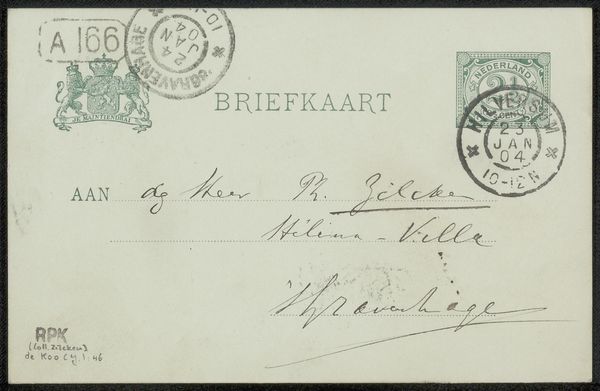 A 166
'SGRAVENHAGE
24 JAN 04
JE MAINTIENDRAI
BRIEFKAART
NEDERLAND
2½
CENT
HILVERSUM
23
JAN
04
10-12N
AAN de Heer Ph. Zilcken
Hélène-Villa
's Gravenhage
RPK
(Coll. Zilcken)
de Koo (J.) 46